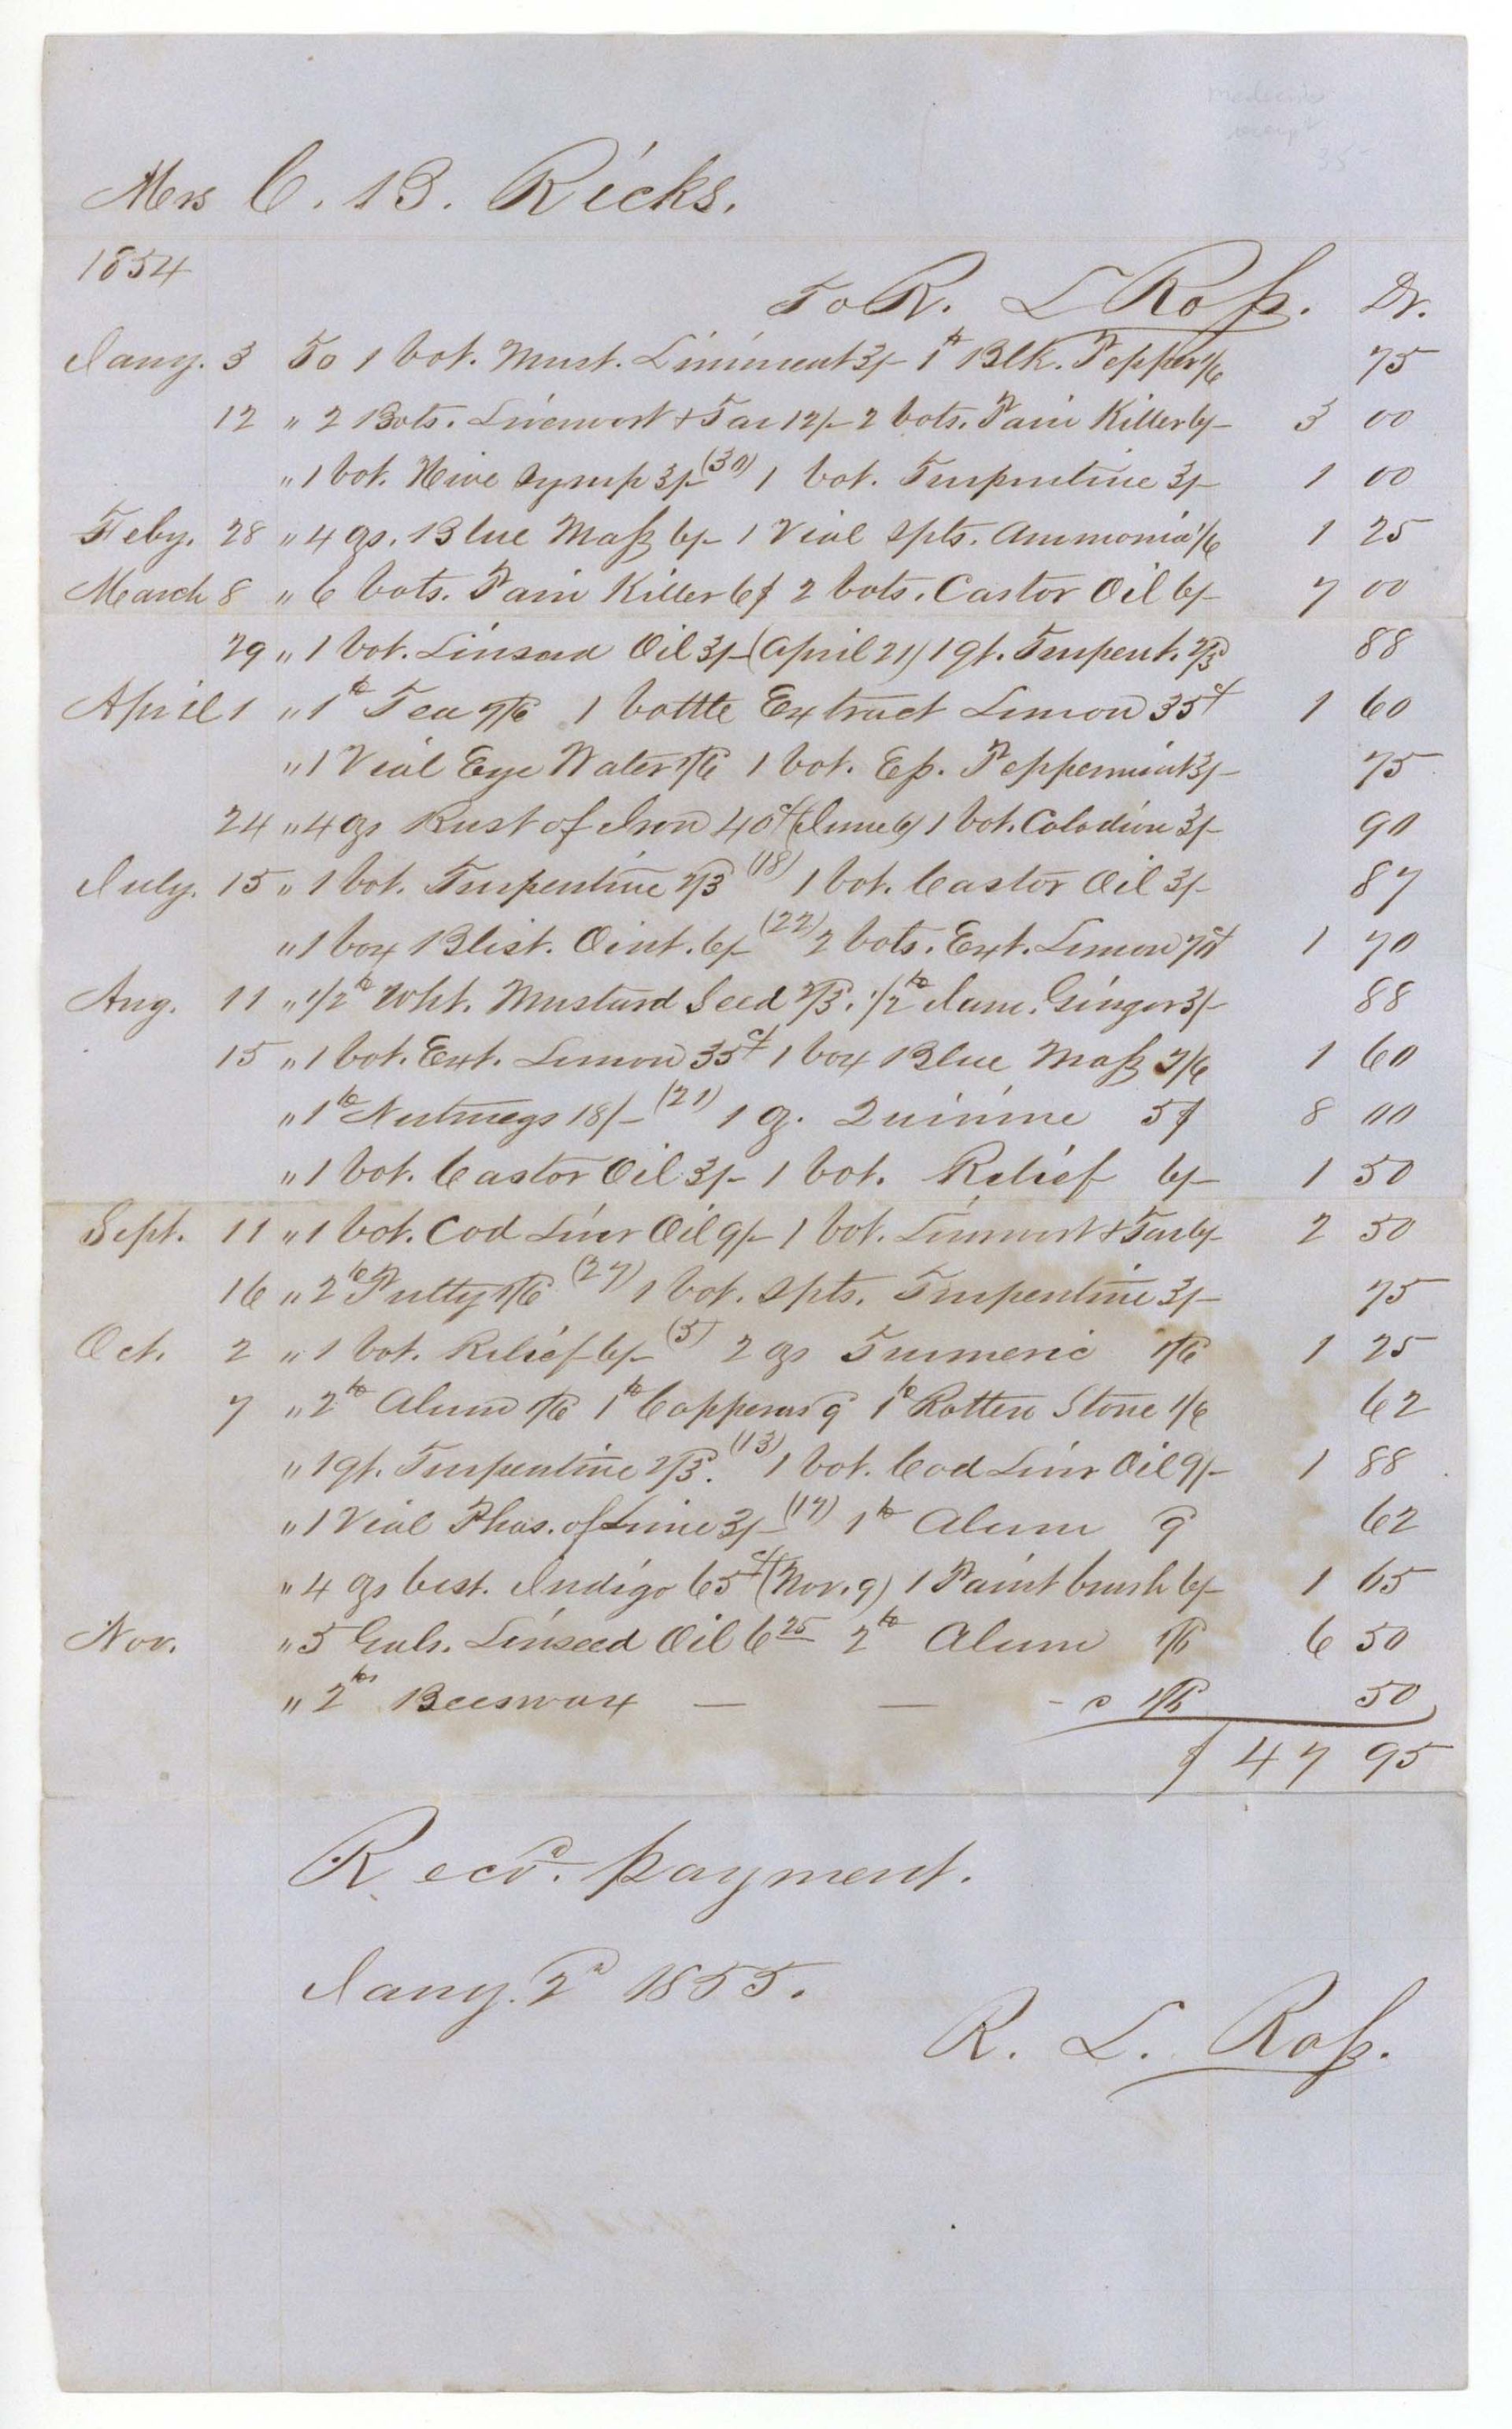 Mrs C. B. Ricks.
1854
To R. L Roſs. Dr.
Jany. 3 To 1 bot. Must. Liniment 3/- 1 ℔ Blk. Pepper 1/6 75
12 " 2 Bots. Liverwort + Tar 12/- 2 bots. Pain Killer 6/- 3 00
" 1 bot. Hive Syrup 3/- (30) 1 bot. Turpentine 3/- 1 00
Feby. 28 " 4 ozs. Blue Maſs 6/- 1 Vial Spts. Ammonia 1/6 1 25
March 8 " 6 bots. Pain Killer 6$ 2 bots. Castor Oil 6/- 7 00
29 " 1 bot. Linseed Oil 3/- (April 21) 1 qt. Turpent. 2/3 88
April 1 " 1 ℔ Tea 7/6 1 bottle Extract Lemon 35 ct 1 60
" 1 Vial Eye Water 1/6 1 bot. Eſs. Peppermint 3/- 75
24 " 4 ozs Rust of Iron 40 ct (June 6) 1 bot. Colodion 3/- 90
July. 15 " 1 bot. Turpentine 2/3 (18) 1 bot. Castor Oil 3/- 87
" 1 box Blist. Oint. 6/- (22) 2 bots. Ext. Lemon 70 ct 1 70
Aug. 11 " 1/2 ℔ Wht. Mustard Seed 2/3. 1/2 ℔ Jam. Ginger 3/- 88
15 " 1 bot. Ext. Lemon 35 ct 1 box Blue Maſs 7/6 1 60
" 1 ℔ Nutmegs 18/- (21) 1 oz. Quinine 5$ 8 00
" 1 bot. Castor Oil 3/- 1 bot. Relief 6/- 1 50
Sept. 11 " 1 bot. Cod Liver Oil 9/- 1 bot. Liverwort + Tar 6/- 2 50
16 " 2 ℔ Putty 1/6 (27) 1 bot. Spts. Turpentine 3/- 75
Oct. 2 " 1 bot. Relief 6/- (5) 2 ozs Turmeric 1/6 1 25
7 " 2 ℔ Alum 1/6 1 ℔ Copperas 9 1 ℔ Rotten Stone 1/6 62
" 1 qt. Turpentine 2/3. (13) 1 bot. Cod Liver Oil 9/- 1 88
" 1 Vial Phos. of Lime 3/- (17) 1 ℔ Alum 9 62
" 4 ozs best. Indigo 65 ct (Nov. 9) 1 Paint brush 6/- 1 65
Nov. " 5 Gals. Linseed Oil 6 25 2 ℔ Alum 1/6 6 50
" 2 ℔s Beeswax — — - 1/6 50
$ 47 95
Recd. payment.
Jany. 2d 1855.
R. L. Roſs.